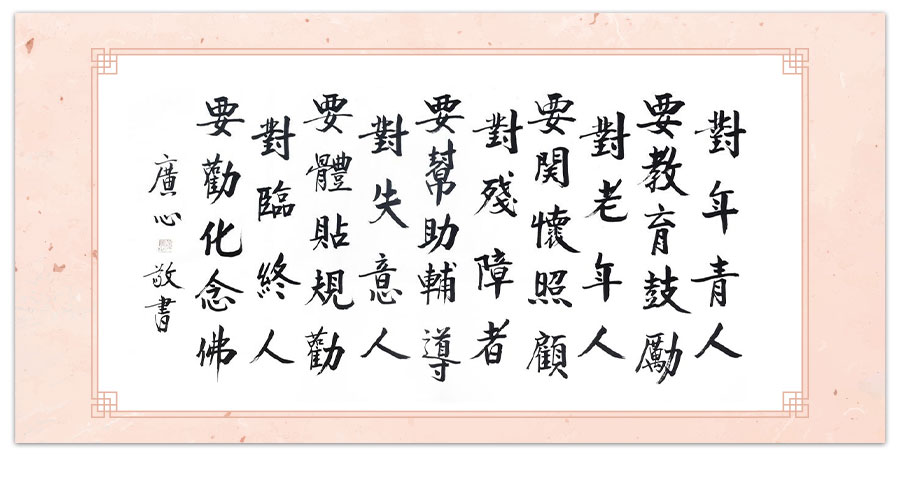 對年青人
要教育鼓勵
對老年人
要関懷照顧
對殘障者
要幫助輔導
對失意人
要體貼規勸
對臨終人
要勸化念佛
廣心
敬書